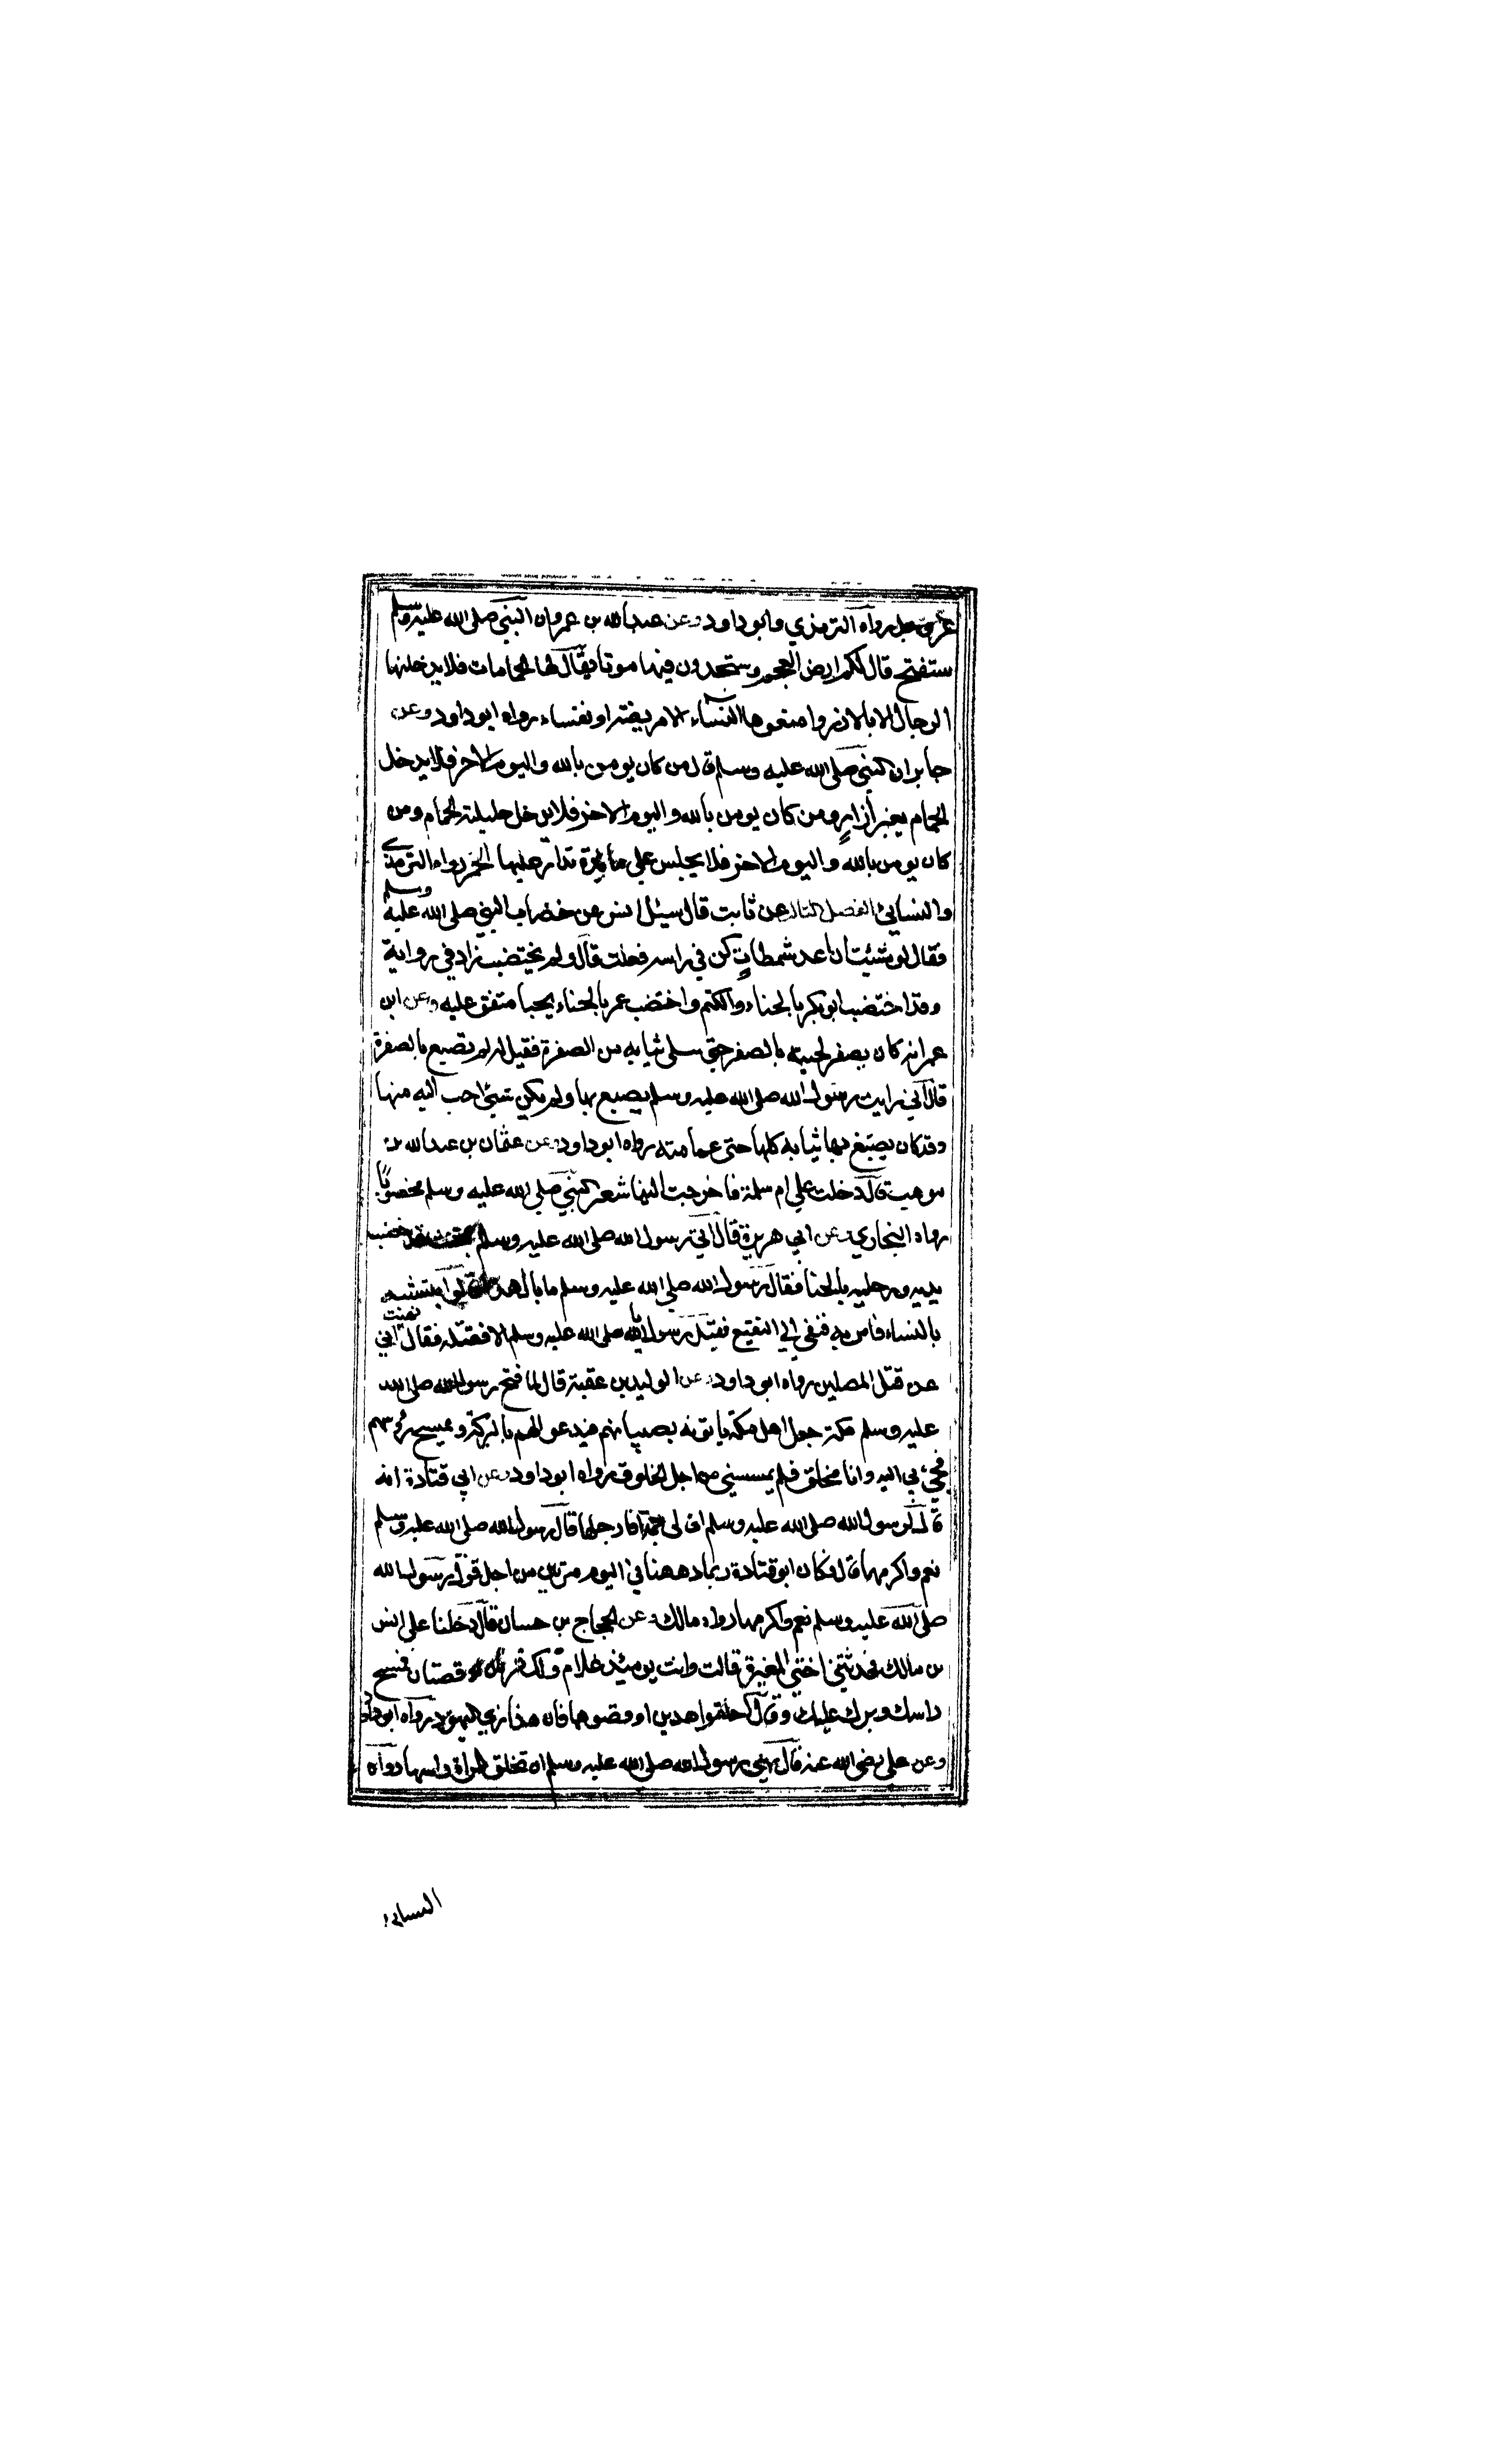 عز وجل رواه الترمذي وابو داود وعن عبد الله بن عمرو ان النبي صلى الله عليه وسلم
ستفتح قال لكم ارض العجم وستجدون فيها بيوتا يقال لها الحمامات فلا يدخلنها
الرجال الا بالازر وامنعوها النساء الا مريضة او نفساء رواه ابو داود وعن
جابر ان النبي صلى الله عليه وسلم قال من كان يومن بالله واليوم الاخر فلا يدخل
الحمام بغير ازار ومن كان يومن بالله واليوم الاخر فلا يدخل حليلته الحمام ومن
كان يومن بالله واليوم الاخر فلا يجلس على مائدة تدار عليها الخمر رواه الترمذي
والنسائي الفصل الثالث عن ثابت قال سئل انس عن خضاب النبي صلى الله عليه وسلم
فقال لو شئت ان اعد شمطات كن في راسه فعلت قال ولم يختضب زاد في رواية
وقد اختضب ابو بكر بالحناء والكتم واختضب عمر بالحناء بحتا متفق عليه وعن ابن
عمر انه كان يصفر لحيته بالصفرة حتى تمتلى ثيابه من الصفرة فقيل له لم تصبغ بالصفرة
قال اني رايت رسول الله صلى الله عليه وسلم يصبغ بها ولم يكن شيئ احب اليه منها
وقد كان يصبغ بها ثيابه كلها حتى عمامته رواه ابو داود وعن عثمان بن عبد الله بن
موهب قال دخلت على ام سلمة فاخرجت الينا شعر النبي صلى الله عليه وسلم مخضوبًا
رواه البخاري وعن ابي هريرة قال اتي رسول الله صلى الله عليه وسلم بمخنث قد خضب
يديه ورجليه بالحنا فقال رسول الله صلى الله عليه وسلم ما بال هذا قالوا يتشبه
بالنساء فامر به فنفي الى النقيع فقيل يا رسول الله صلى الله عليه وسلم الا نقتله فقال اني نهيت
عن قتل المصلين رواه ابو داود وعن الوليد بن عقبة قال لما فتح رسول الله صلى الله
عليه وسلم مكة جعل اهل مكة ياتونه بصبيانهم فيدعو لهم بالبركة ويمسح رؤسهم
فجيء بي اليه وانا مخلق فلم يمسسني من اجل الخلوق رواه ابو داود وعن ابي قتادة انه
قال لرسول الله صلى الله عليه وسلم ان لي جمة افارجلها قال رسول الله صلى الله عليه وسلم
نعم واكرمها قال فكان ابو قتادة ربما دهنها في اليوم مرتين من اجل قول رسول الله
صلى الله عليه وسلم نعم واكرمها رواه مالك وعن الحجاج بن حسان قال دخلنا على انس
بن مالك فحدثتني اختي المغيرة قالت وانت يومئذ غلام ولك قرنان او قصتان فمسح
راسك وبرك عليك وقال احلقوا هذين او قصوهما فان هذا زي اليهود رواه ابو داود
وعن علي رضي الله عنه قال نهى رسول الله صلى الله عليه وسلم ان تحلق المراة راسها رواه
النسائي